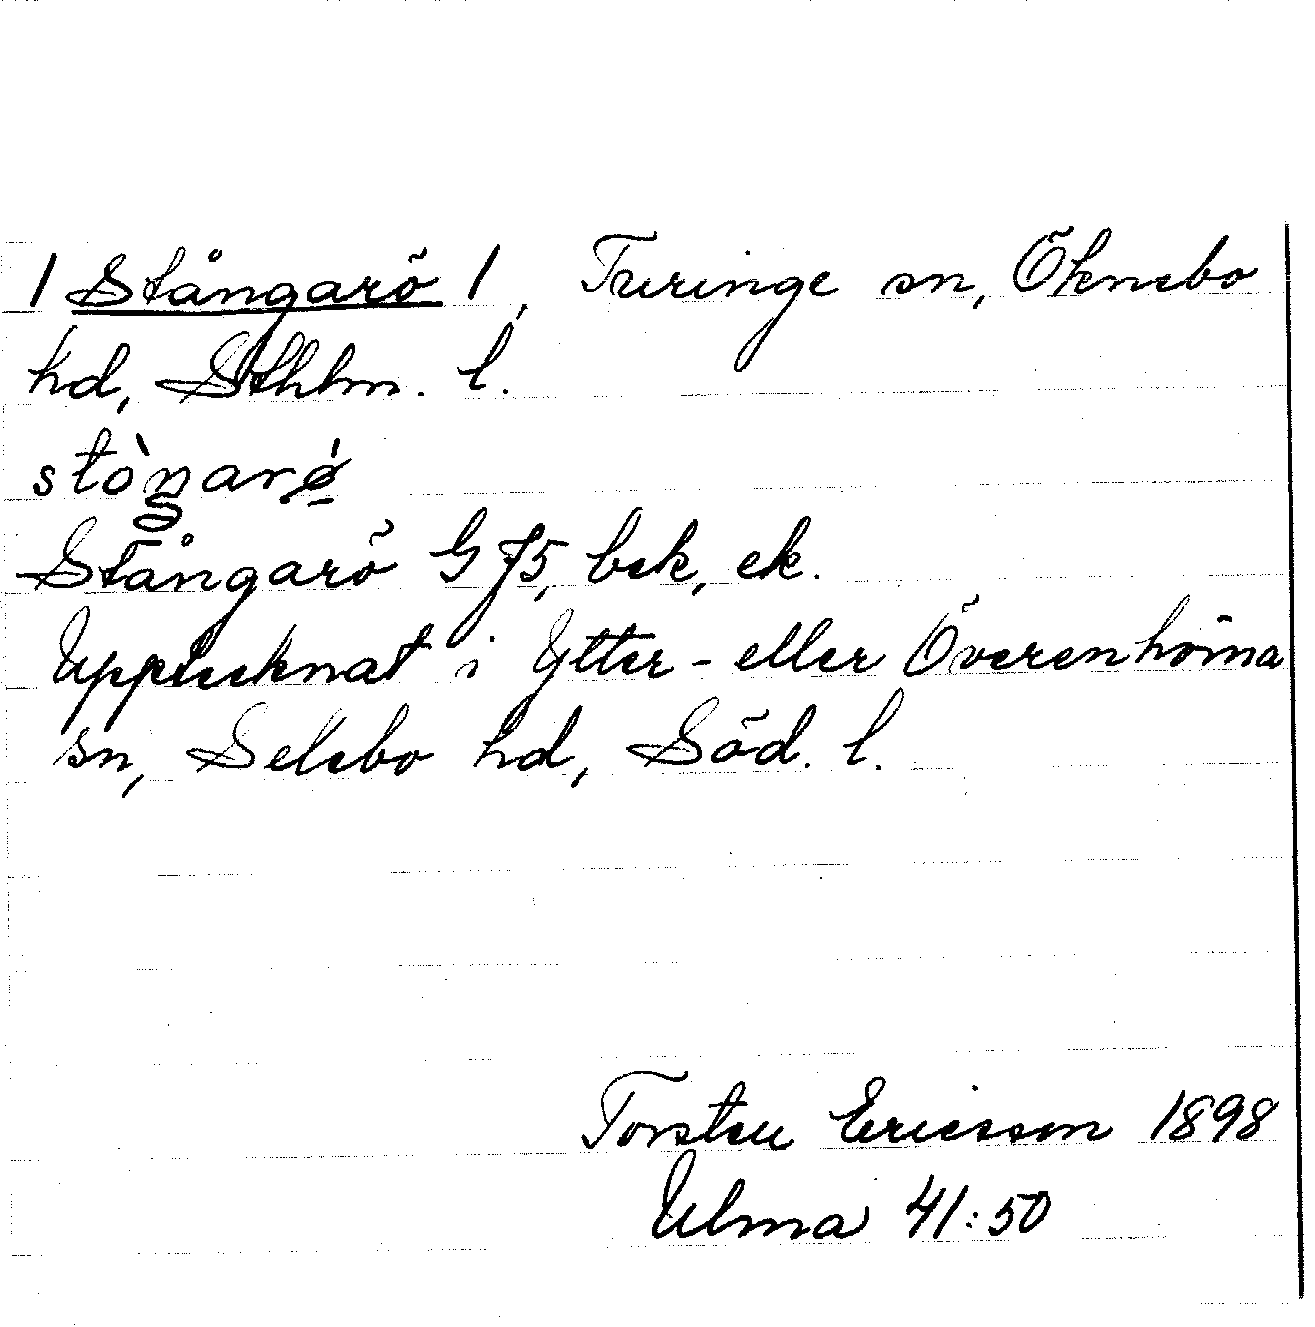 / Stångarö /, Turinge sn, Öknebo
hd, Sthlm. l.
stòŋarø̀
Stångarö G J5, bek, ek.
Upptecknat i Ytter- eller Överenhörna
sn, Selebo hd, Söd. l.
Torsten Ericsson 1898
Ulma 41:50